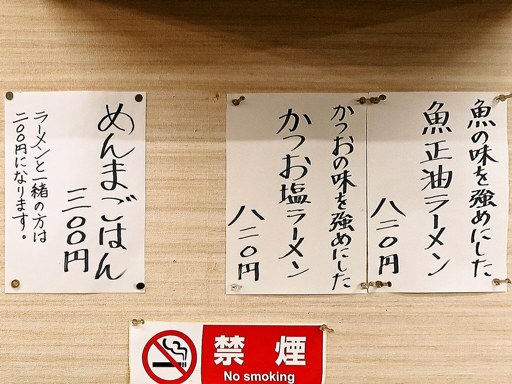 魚の味を強めにした
魚正油ラーメン
八二〇円
かつおの味を強めにした
かつお塩ラーメン
八二〇円
めんまごはん
三〇〇円
ラーメンと一緒の方は
二〇〇円になります。
禁煙
No smoking